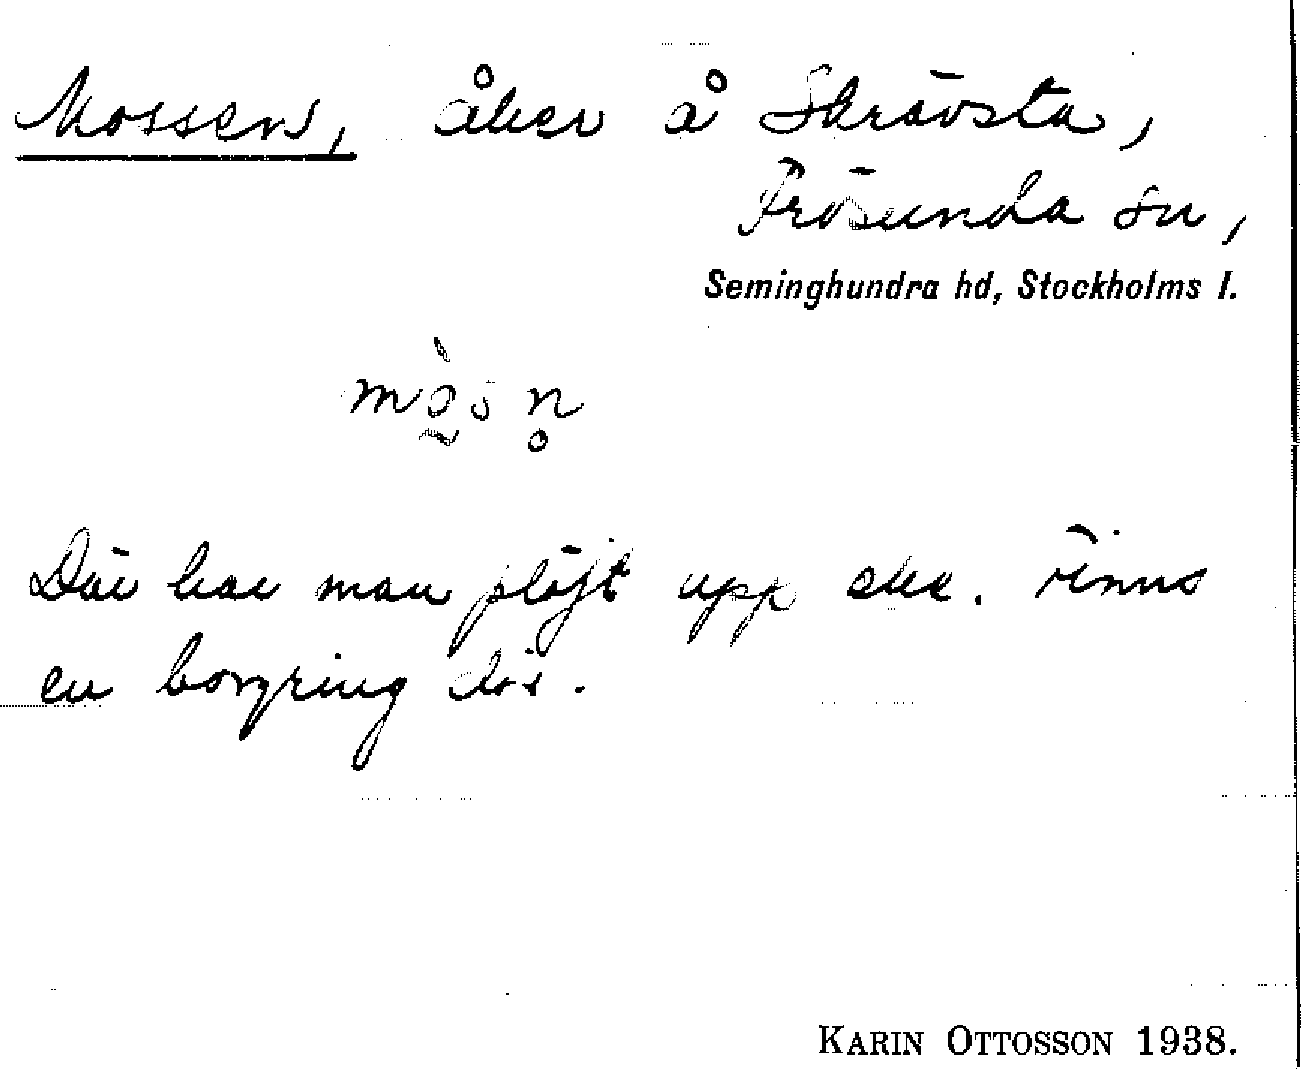 Mossen, åker å Skrävsta,
Frösunda sn,
Seminghundra hd, Stockholms l.
Där har man plöjt upp Finns
en borgring där.
KARIN OTTOSSON 1938.